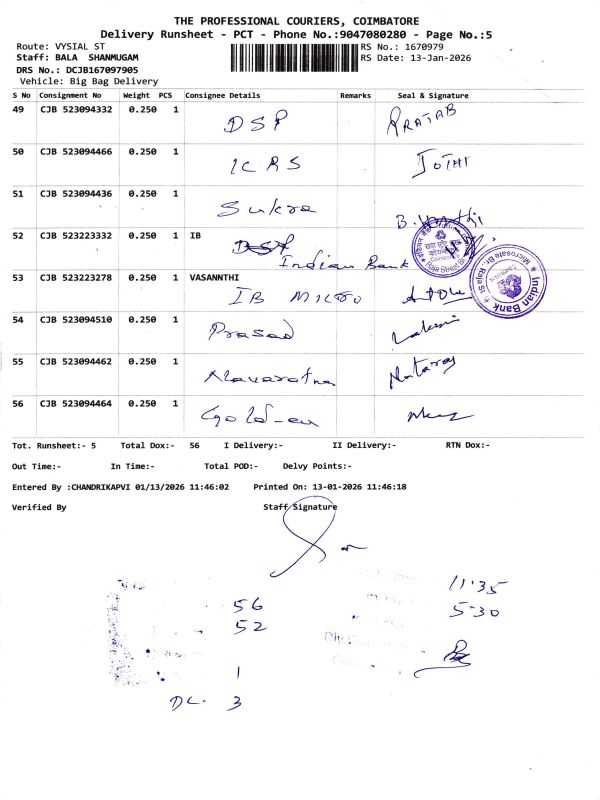 THE PROFESSIONAL COURIERS, COIMBATORE
Delivery Runsheet - PCT - Phone No.:9047080280 - Page No.:5
Route: VYSIAL ST RS No.: 1670979
Staff: BALA SHANMUGAM RS Date: 13-Jan-2026
DRS No.: DCJB167097905
Vehicle: Big Bag Delivery
S No Consignment No Weight PCS Consignee Details Remarks Seal & Signature
49 CJB 523094332 0.250 1 DSP PRATAB
50 CJB 523094466 0.250 1 ICRS JOTHI
51 CJB 523094436 0.250 1 Sukra B.
52 CJB 523223332 0.250 1 IB
Indian Bank
53 CJB 523223278 0.250 1 VASANNTHI
IB Micro
Indian Bank
Microsate Br. Raja St.
54 CJB 523094510 0.250 1 Prasad Lakshmi
55 CJB 523094462 0.250 1 Navaratna Nataraj
56 CJB 523094464 0.250 1 Golden
Tot. Runsheet:- 5 Total Dox:- 56 I Delivery:- II Delivery:- RTN Dox:-
Out Time:- In Time:- Total POD:- Delvy Points:-
Entered By :CHANDRIKAPVI 01/13/2026 11:46:02 Printed On: 13-01-2026 11:46:18
Verified By Staff Signature
11:35
56 5-30
52
1
DL. 3